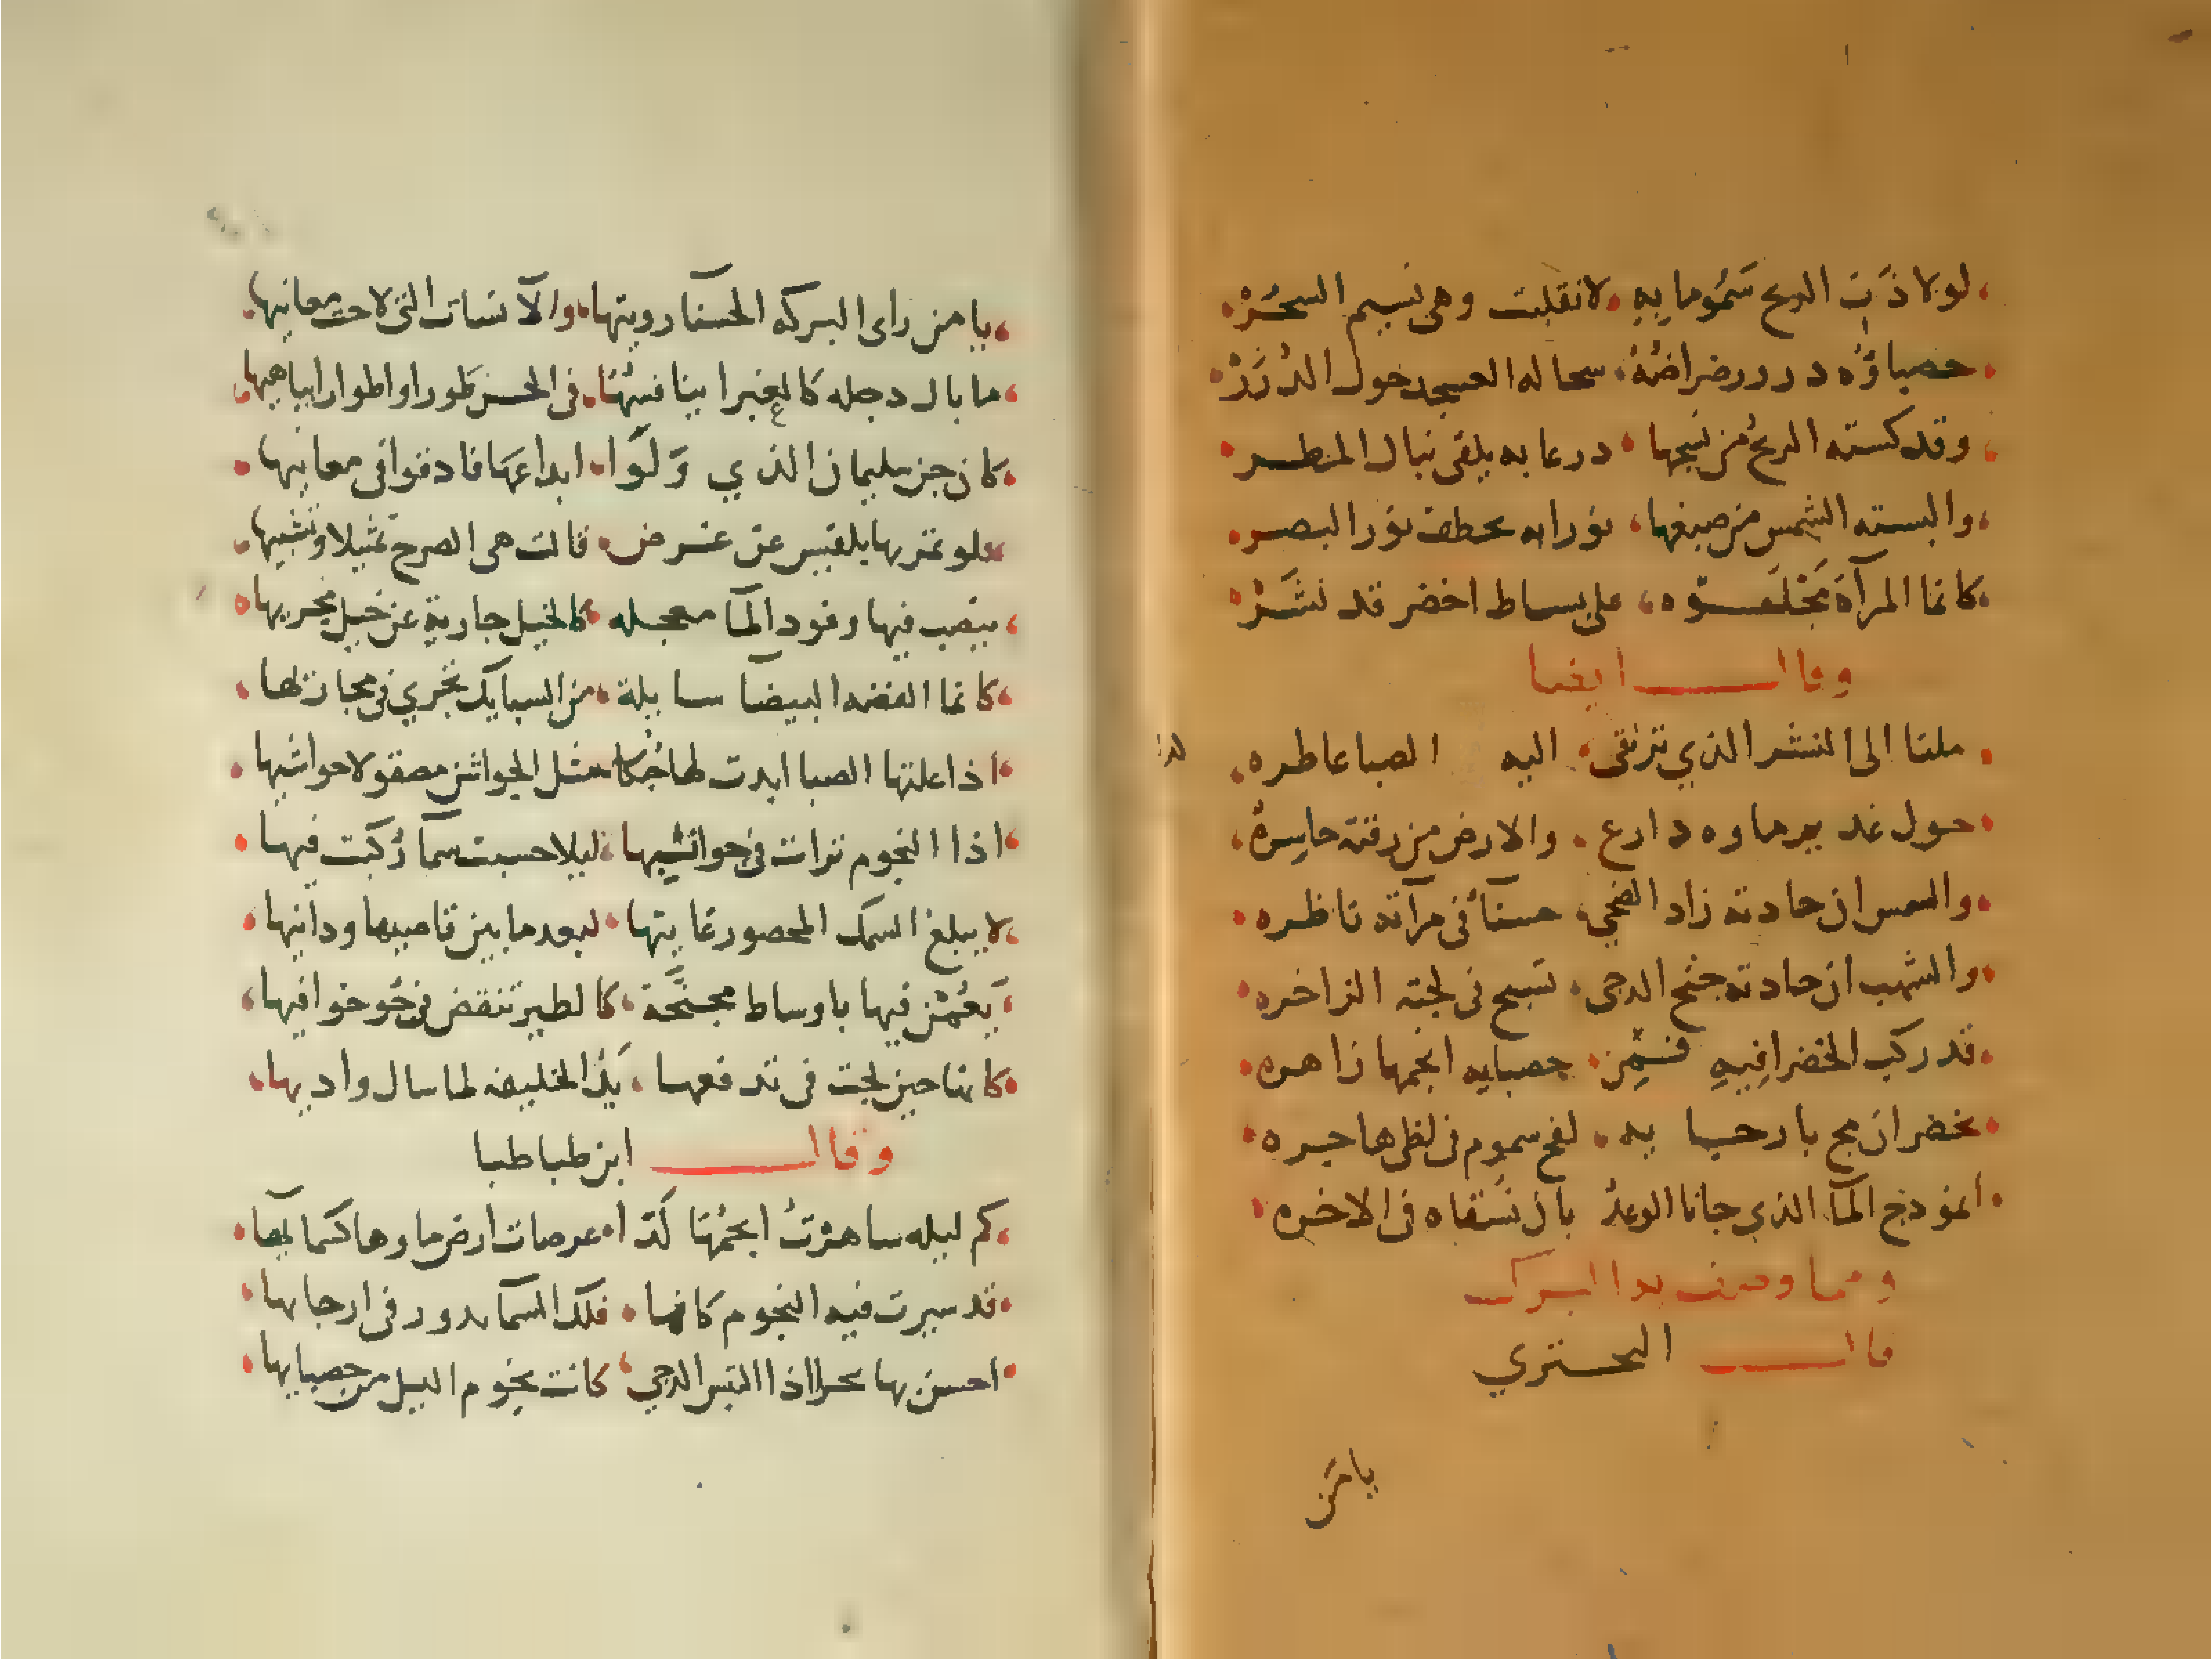 لولاذت الريح سموما به لانقلبت وهي نسيم السحر
حصباؤه درر رضراضه سحاله العسجد حول الدرر
وقد كسته الريح من نسجها درعا به يلقى نبال المطر
والبسته الشمس من صبغها نورا به يخطف نور البصر
كانما المرآة مجلوه على بساط اخضر قد نشر
وقال ايضا
ملنا الى النشر الذي ترتقى اليه الصبا عاطره
حول غدير ماوه دارع والارض من رقته حاسرة
والشمس ان حادته زاد الضحي حسنا في مرآته ناظره
والشهب ان حادته جنح الدجى تسبح في لجته الزاخره
قد ركب الخضرا فيه فمن حصبايه انجمها زاهره
يخضر ان مج بارحيا به لفح سموم في لظى هاجره
انموذج المآ الذي جانا الوعد بان نسقاه في الاخره
ومما وصف به البرك
قال البحتري
يا من
يا من راى البركه الحسنا رويتها والآنسات التي لاحت معانيها
ما بال دجله كالغيرا ينافسها في الحسن طورا واطوارا يباهيها
كان جن سليمان الذي ولوا ابداعها فادقوا في معانيها
فلو تمر بها بلقيس عن عرض قالت هي الصرح تمثيلا وتشبيها
ينصب فيها وفود المآ معجله كالخيل جارية عن خيل مجريها
كانما الفضه البيضا سايلة من السبايك تجري في مجاريها
اذا علتها الصبا ابدت لها حبكا مثل الجواشن مصقولا حواشيها
اذا النجوم تراات في حوانشيها ليلا حسبت سمآ ركبت فيها
لا يبلغ السمك المحصور غايتها لبعد ما بين قاصيها ودانيها
يعمن فيها باوساط مجنحة كالطير تنقض في جو خوافيها
كانها حين لجت في تدفعها يد الخليفه لما سال واديها
وقال ابن طباطبا
كم ليله ساهرت انجمها لدا عرصات ارض ماوها كسمايها
قد سيرت فيه النجوم كانها فلك السمآ يدور في ارجايها
احسن بها بحرا اذا التبس الدجي كانت نجوم الليل من حصبايها